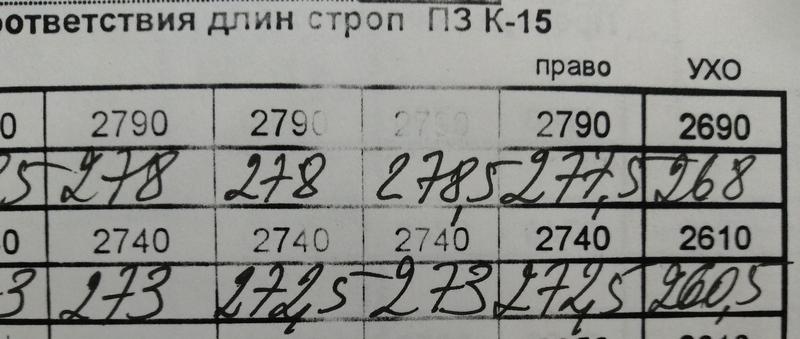 ответствия длин строп ПЗ К-15
право УХО
0 2790 2790 2790 2790 2690
5 278 278 278,5 277,5 268
0 2740 2740 2740 2740 2610
3 273 272,5 273 272,5 260,5